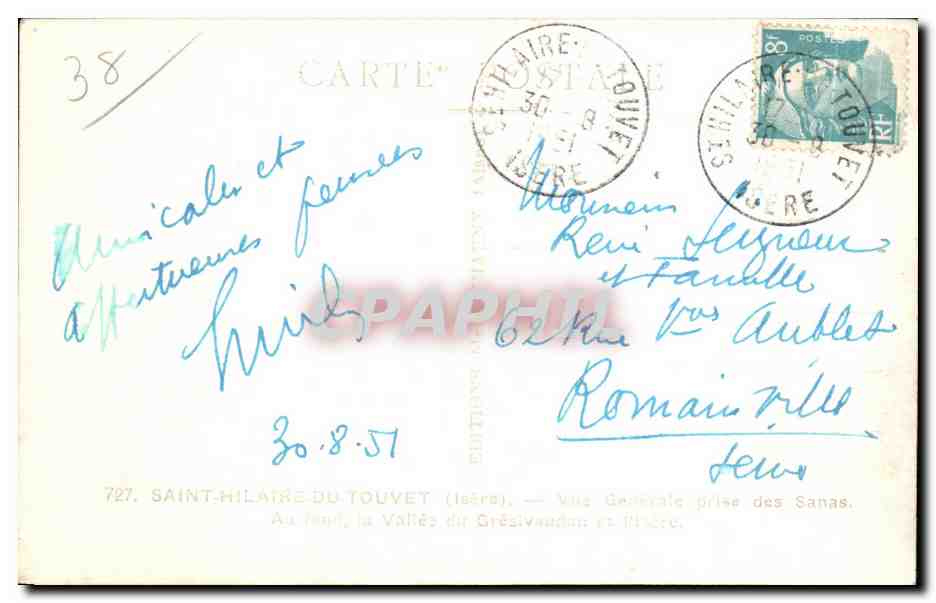 38
CARTE POSTALE
ST HILAIRE TOUVET
30 - 8
1951
ISERE
8F
POSTES
RF
ST HILAIRE TOUVET
17
30 - 8
1951
ISERE
Amicales et
affectueuses pensées
30.8.51
Monsieur
René Seigneur
et Famille
62 Rue Vve Aublet
Romainville
Seine
CPAPHIL
727. SAINT-HILAIRE-DU-TOUVET (Isère). — Vue Générale prise des Sanas.
Au fond, la Vallée du Grésivaudan et l'Isère.